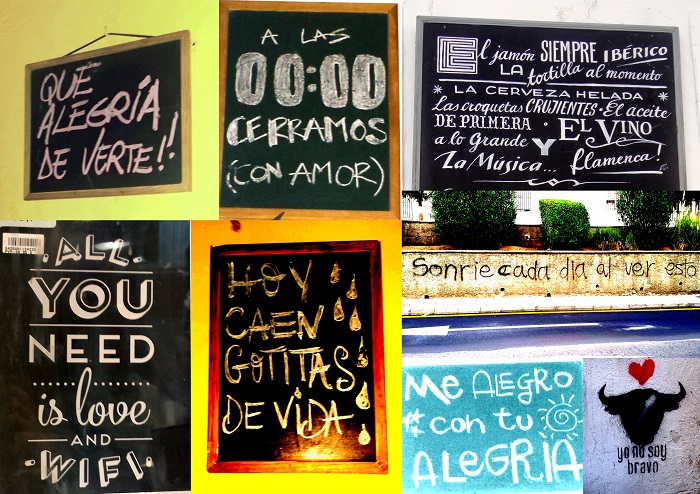 QUE
ALEGRÍA
DE VERTE!!
A LAS
00:00
CERRAMOS
(CON AMOR)
El jamón SIEMPRE IBÉRICO
LA tortilla al momento
* LA CERVEZA HELADA *
Las croquetas CRUJIENTES · El aceite
DE PRIMERA · EL VINO
a lo Grande Y
La Música... flamenca!
ALL
YOU
NEED
is love
AND
WIFI
HOY
CAEN
GOTITAS
DE VIDA
Sonrie cada dia al ver esto
Me ALEGRO
con tu
ALEGRÍA
yo no soy
bravo